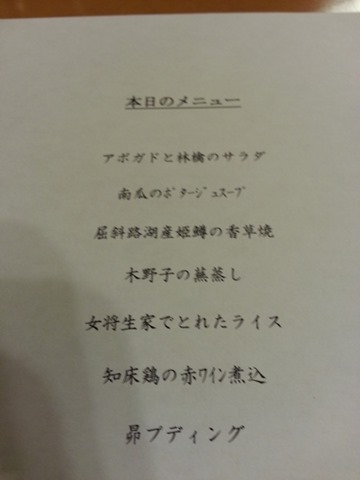 本日のメニュー
アボガドと林檎のサラダ
南瓜のﾎﾟﾀｰｼﾞｭｽｰﾌﾟ
屈斜路湖産姫鱒の香草焼
木野子の蕪蒸し
女将生家でとれたライス
知床鶏の赤ﾜｲﾝ煮込
昴プディング